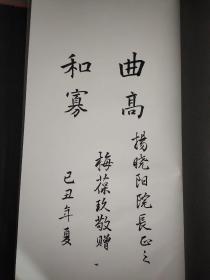 曲高
和寡
揚晓阳院長正之
梅葆玖敬赠
己丑年夏